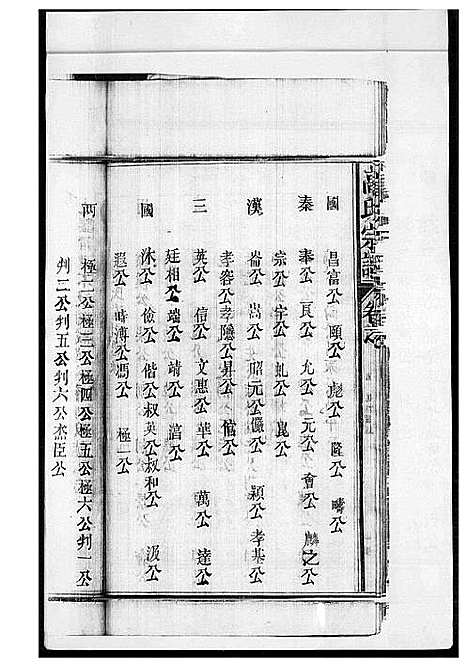 蘭氏宗譜
國　昌富公　頤公　彪公　隆公　疇公
秦　秦公　良公　允公　元公　會公　麟之公
宗公　宇公　虬公　崑公
漢　崙公　嵩公　昭元公　儼公　穎公　孝基公
孝容公　孝隱公　昇公　信公
三　英公　信公　文惠公　華公　萬公　達公
廷相公　端公　靖公　菖公
國　沐公　儉公　偕公　叔英公　叔和公　汲公
遐公　時溥公　馮公　極一公
兩　極二公　極三公　極四公　極五公　極六公　判一公
判二公　判五公　判六公　杰臣公